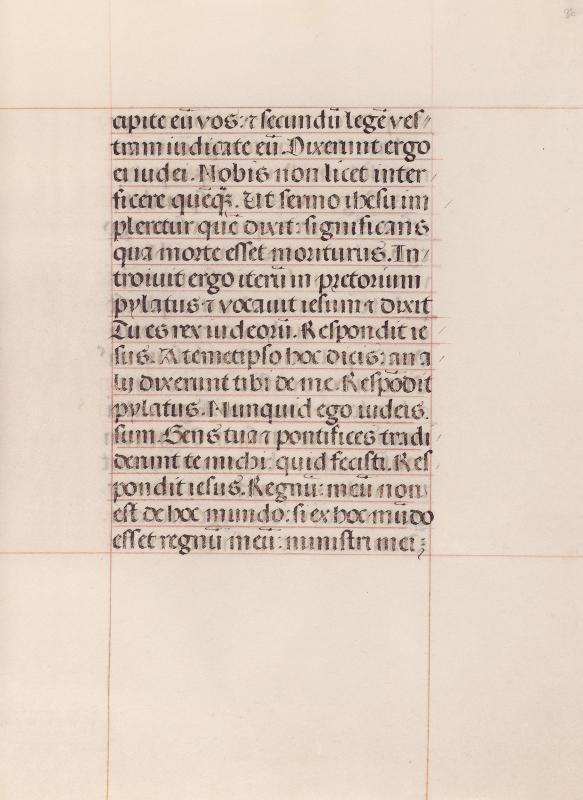 86
cipite eū vos: ⁊ secundū legē ves⸗
tram iudicate eū. Dixerunt ergo
ei iudei. Nobis non licet inter
ficere quēq̄ꝫ. Ut sermo ihesu im
pleretur quē dixit: significans
qua morte esset moriturus. In⸗
troiuit ergo iterū in pretorium
pylatus ⁊ vocavit iesum ⁊ dixit
Tu es rex iudeorū. Respondit ie
sus. A temetipso hoc dicis: an a
lij dixerunt tibi de me. Respōdit
pylatus. Nunquid ego iudeus.
sum. Gens tua ⁊ pontifices tradi
derunt te michi: quid fecisti. Res
pondit iesus. Regnū: meū non
est de hoc mundo: si ex hoc mūdo
esset regnū meū: ministri mei;